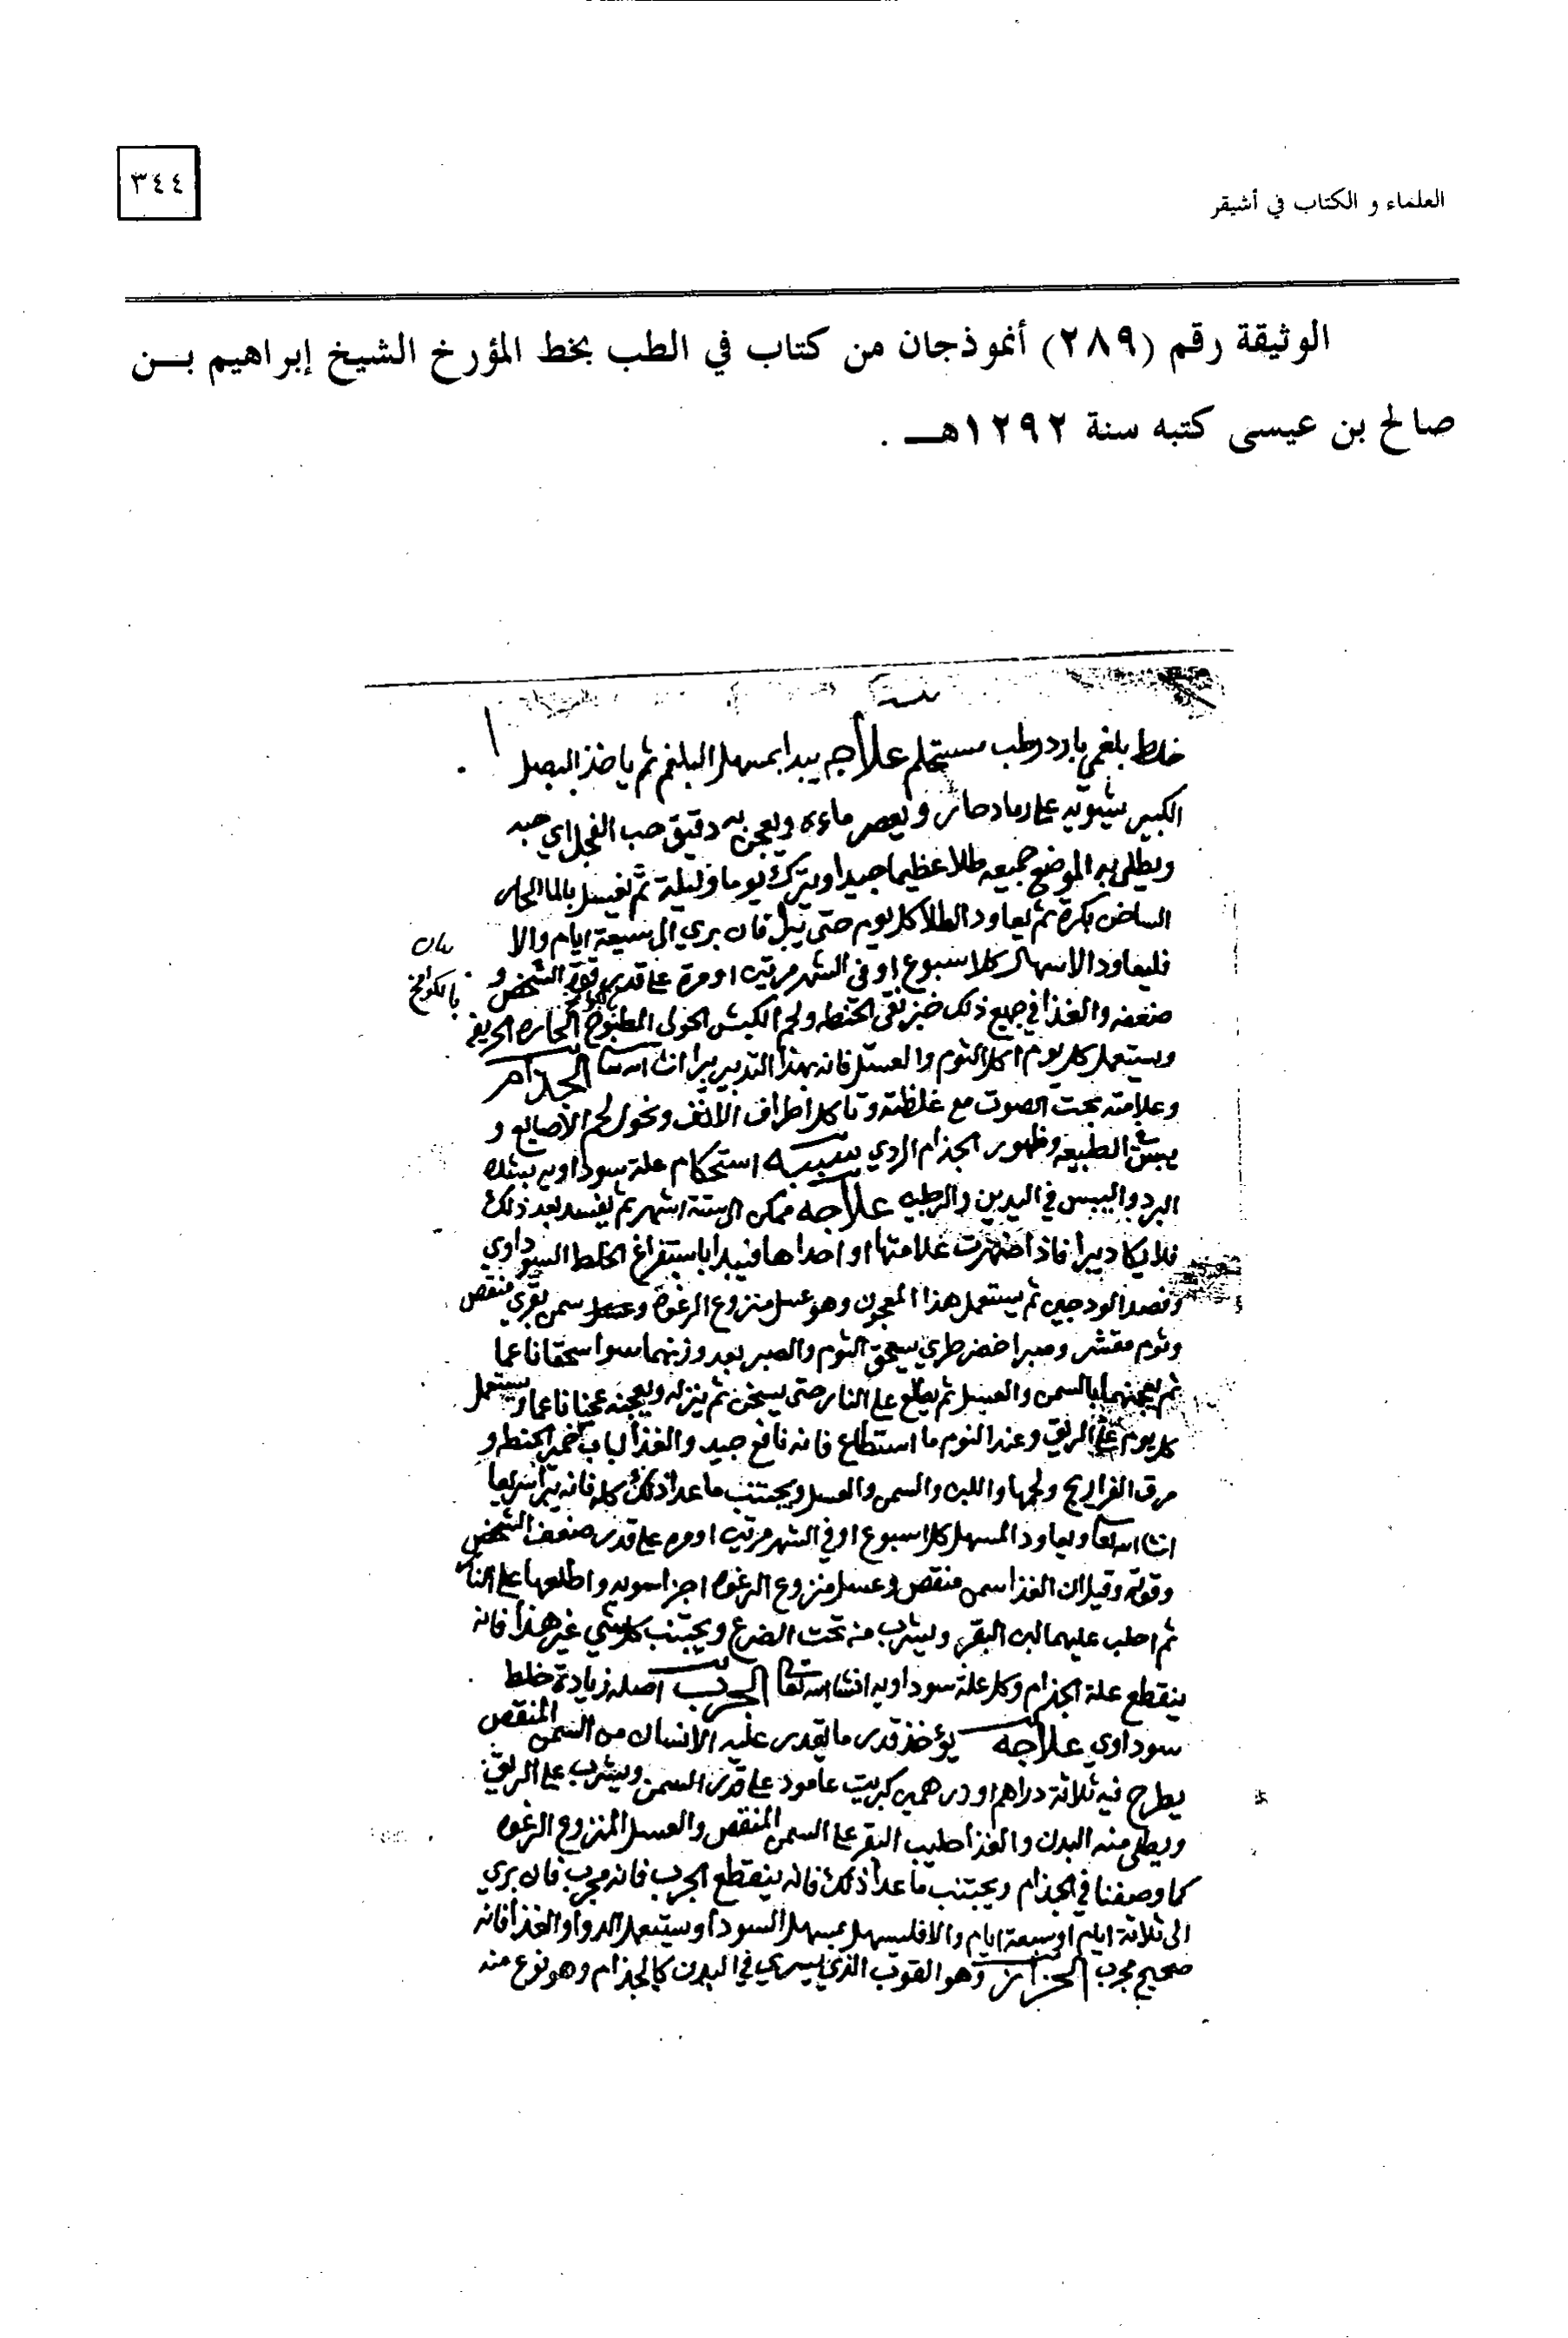 العلماء و الكتاب في أشيقر
٣٤٤
الوثيقة رقم (٢٨٩) أنموذجان من كتاب في الطب بخط المؤرخ الشيخ إبراهيم بـــن
صالح بن عيسى كتبه سنة ١٢٩٢هــ .
سببه
خلط بلغمي بارد رطب مستحكم علاجه يبدا بمسهل البلغم ثم ياخذ البصل
الكبير يشويه على رماد حار ويعصر ماءه ويعجن به دقيق حب الفجل اي حبه
ويطلى به الموضع جميعه طلا عظيما جيدا ويترك يوما وليلة ثم يغسل بالما الحار
بكرة ثم يعاود الطلا كل يوم حتى فان بري الى سبعة ايام والا
فليعاود الاسهال كل اسبوع او في الشهر مرتين او مرة على قدر قوة الشخص و
ضعفه والغذا في جميع ذلك خبز نقي الحنطه ولحم الكبش الحولي المطبوخ الحاره الحريفه
ويستعمل كل يوم اكل الثوم والعسل فانه بهذا التدبير يبرا انشا الله تعا الجذام
وعلامته بحت الصوت مع غلظته وتاكل اطراف الانف ونحول لحم الاصابع و
يبس الطبيعه وظهور الجذام الردي سببه استحكام علة سوداويه
البرد واليبس في اليدين والرطبه علاجه ممكن الى ستة اشهر ثم يفسد بعد ذلك
فلا يكاد يبرا فاذا ظهرت علامتها او احداها فيبدا باستفراغ الخلط السوداوي
وفصد الودجين ثم يستعمل هذا المعجون وهو عسل منزوع الرغوة وسمن بقري منقص
وثوم مقشر وصبر اخضر طري يسحق الثوم والصبر بعد وزنهما سوا سحقا ناعما
ثم يعجنهما بالسمن والعسل ثم يطلع على النار حتى يسخن ثم ينزله ويعجنه عجنا ناعما ويستعمل
كل يوم على الريق وعند النوم ما استطاع فانه نافع جيد والغذا لباب خمير الحنطه و
مرق الفراريج ولحمها واللبن والسمن والعسل ويجتنب ما عدا ذلك كله فانه يبرا سريعا
انشا الله تعا ويعاود المسهل كل اسبوع او في الشهر مرتين او مره على قدر ضعف الشخص
وقوته وقيل ان الغذا سمن منقص وعسل منزوع الرغوه اجزا سويه واطلعها على النار
ثم احلب عليهما لبن البقر ويشرب من تحت الضرع ويجتنب كل شي غير هذا فانه
ينقطع علة الجذام وكل علة سوداويه انشا الله تعا الجرب اصله زيادة خلط
سوداوي علاجه يؤخذ قدر ما يقدر عليه الانسان من السمن المنقص
يطرح فيه ثلاثة دراهم او درهمين كبريت عامود على قدر السمن ويشرب على الريق
ويطلى منه البدن والغذا حليب البقر على السمن المنقص والعسل المنزوع الرغوه
كما وصفنا في الجذام ويجتنب ما عدا ذلك فانه ينقطع الجرب فانه مجرب فان بري
الى ثلاثة ايام او سبعة ايام والا فليسهل بمسهل السودا ويستعمل الدوا والغذا فانه
صحيح مجرب الحزاز وهو القوب الذي يسري في البدن كالجذام وهو نوع منه